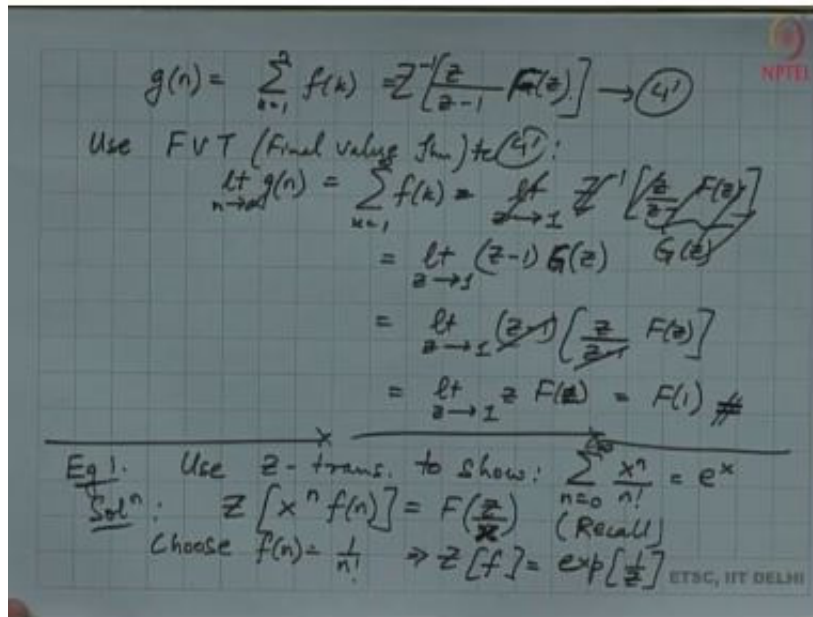 NPTEL
g(n) = ∑_{k=1}^{n} f(k) = Z^{-1}[z/(z-1) F(z)] → (4')
Use FVT (Final value Thm) to (4'):
lt_{n→∞} g(n) = ∑_{k=1} f(k) =
= lt_{z→1} (z-1) G(z) G(z)
= lt_{z→1} (z-1) [z/(z-1) F(z)]
= lt_{z→1} z F(z) = F(1) #
Eg 1. Use z-trans. to show: ∑_{n=0}^{∞} x^n/n! = e^x
Sol^n: Z[x^n f(n)] = F(z/x) (Recall)
Choose f(n) = 1/n! ⇒ Z[f] = exp[1/z]
ETSC, IIT DELHI